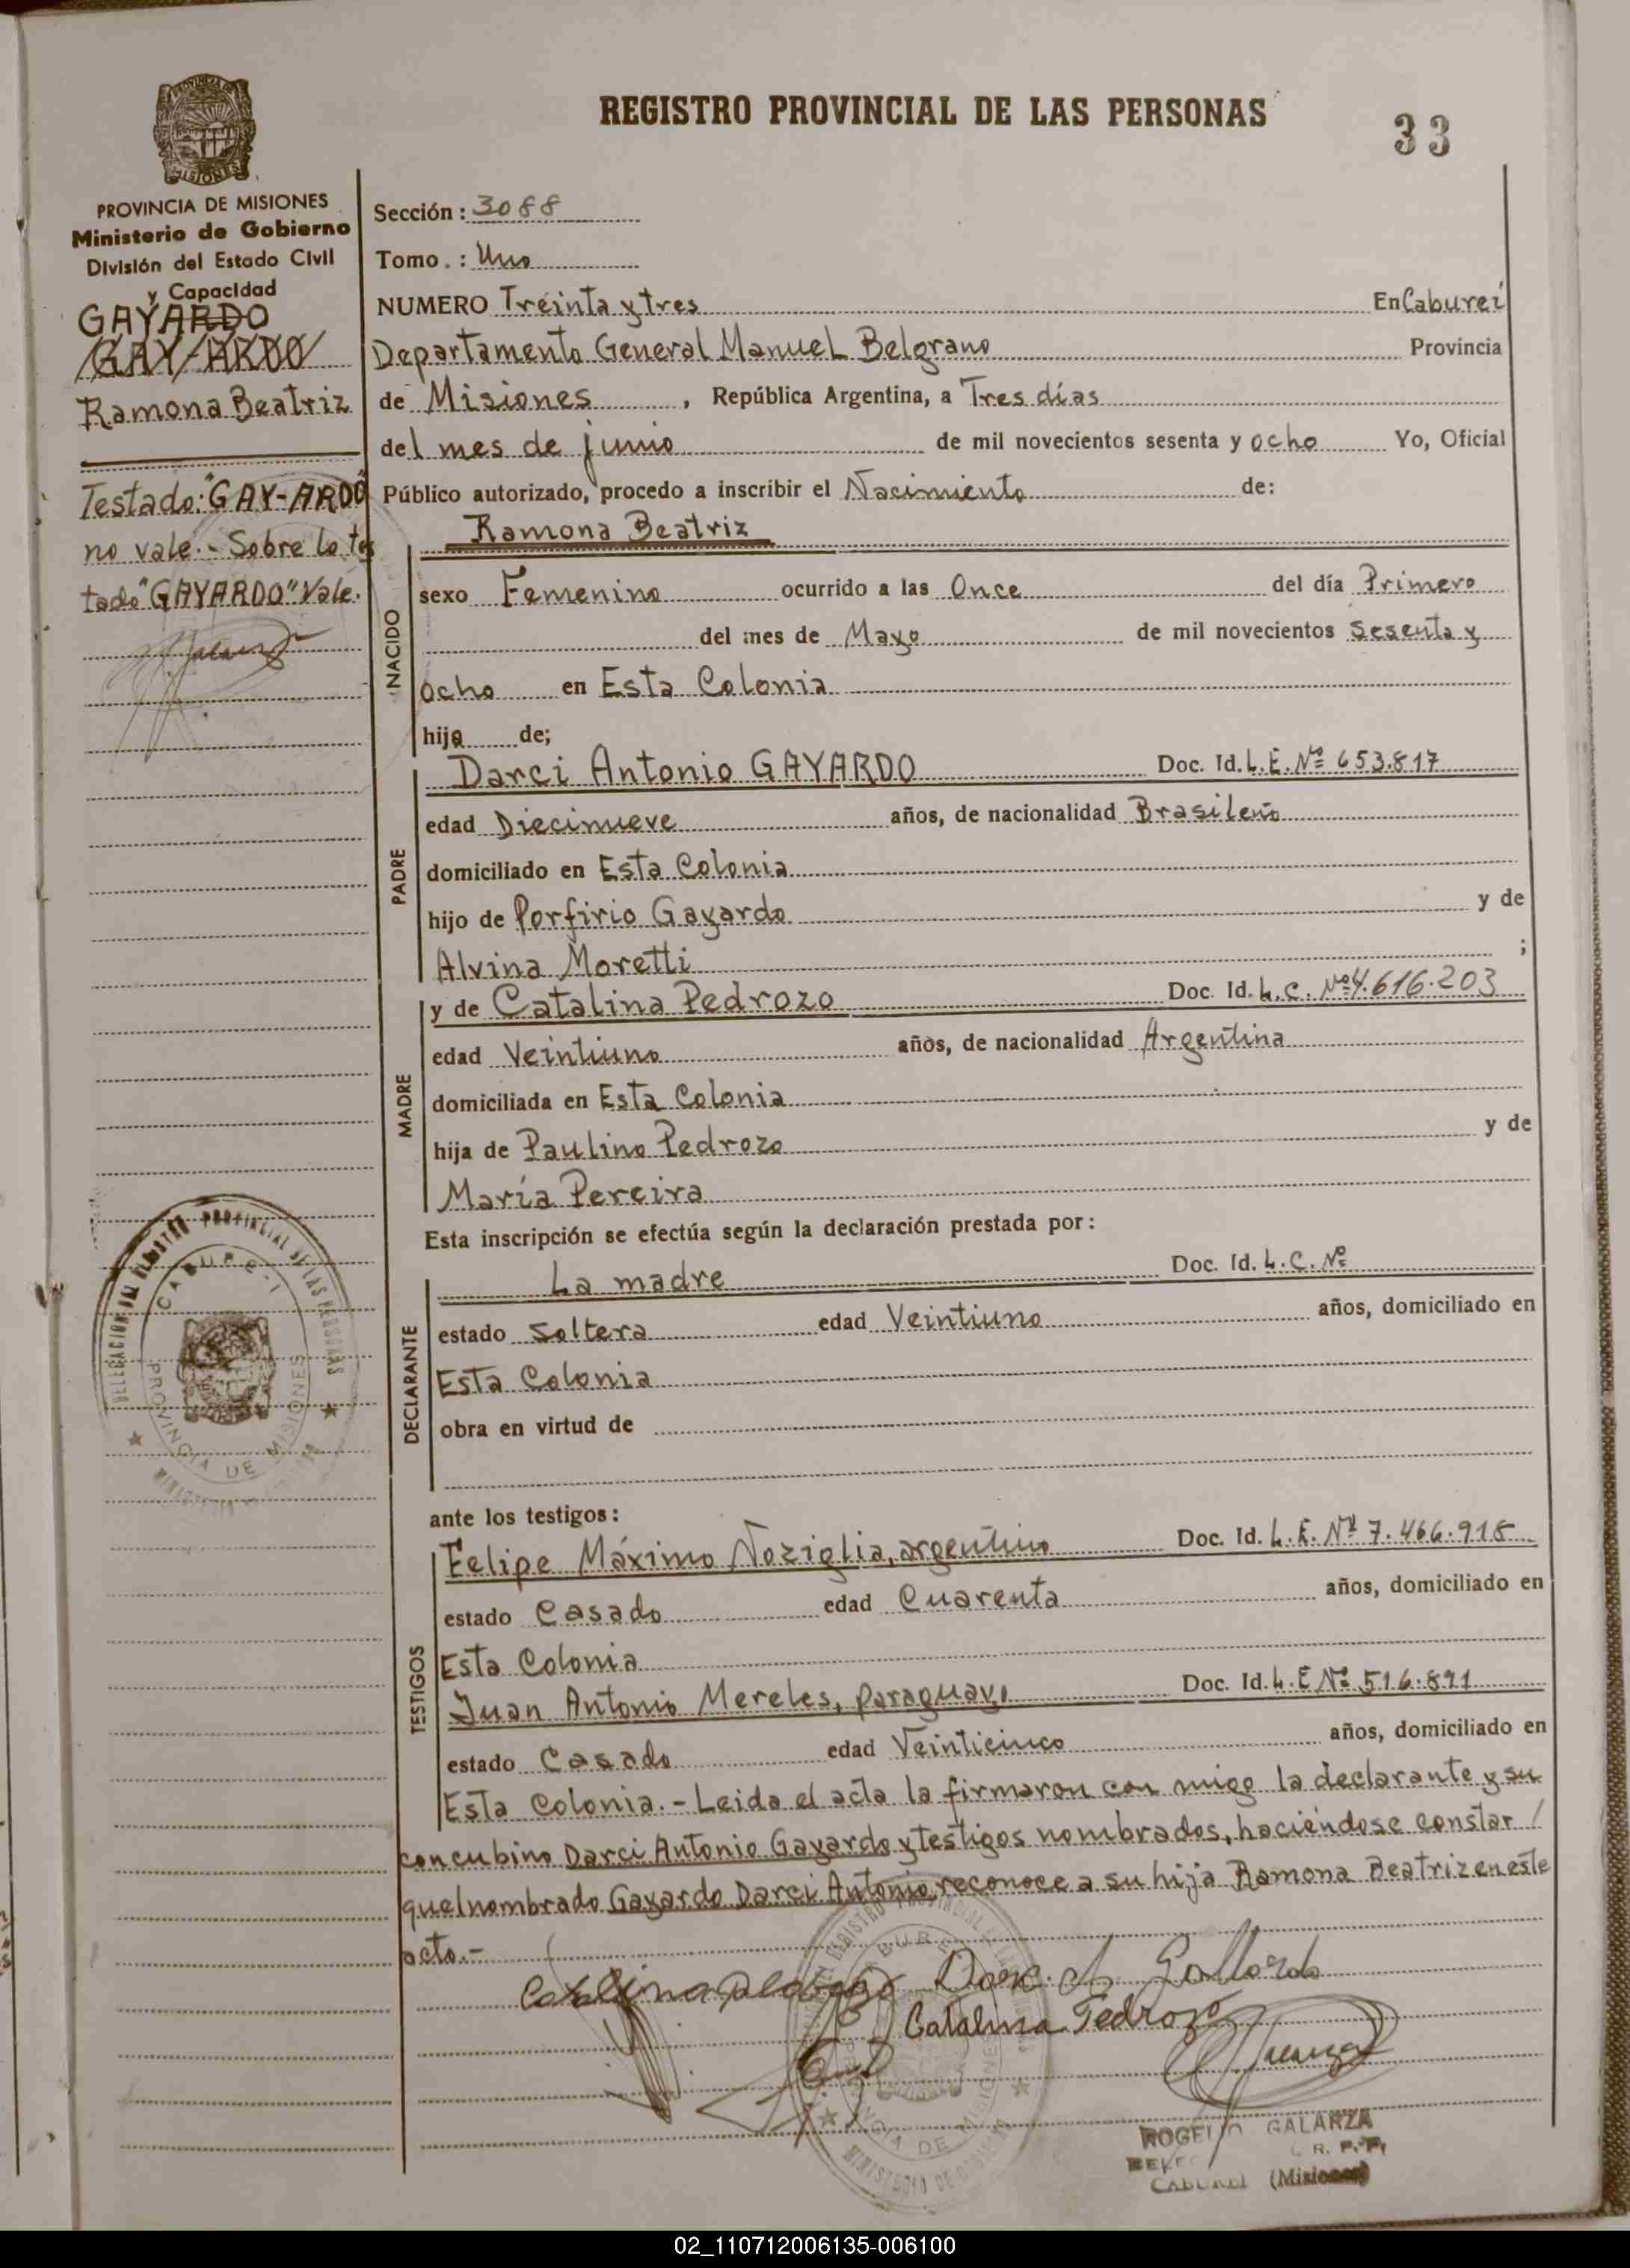 REGISTRO PROVINCIAL DE LAS PERSONAS
33
MISIONES
PROVINCIA DE MISIONES
Ministerio de Gobierno
División del Estado Civil
y Capacidad
GAYARDO
GAY-ARDO
Ramona Beatriz
Testado: "GAY-ARDO"
no vale.- Sobre lo tes
tado "GAYARDO" Vale.
Sección: 3088
Tomo.: Uno
NUMERO Treinta y tres En Cabureí
Departamento General Manuel Belgrano Provincia
de Misiones, República Argentina, a Tres días
del mes de junio de mil novecientos sesenta y ocho Yo, Oficial
Público autorizado, procedo a inscribir el Nacimiento de:
Ramona Beatriz
NACIDO
sexo Femenino ocurrido a las Once del día Primero
del mes de Mayo de mil novecientos Sesenta y
ocho en Esta Colonia
hija de;
PADRE
Darci Antonio GAYARDO Doc. Id. L.E. Nº 653.817
edad Diecinueve años, de nacionalidad Brasileño
domiciliado en Esta Colonia
hijo de Porfirio Gayardo y de
Alvina Moretti ;
MADRE
y de Catalina Pedrozo Doc. Id. L.C. Nº 4.616.203
edad Veintiuno años, de nacionalidad Argentina
domiciliada en Esta Colonia
hija de Paulino Pedrozo y de
María Pereira
Esta inscripción se efectúa según la declaración prestada por:
DECLARANTE
La madre Doc. Id. L.C. Nº
estado Soltera edad Veintiuno años, domiciliado en
Esta Colonia
obra en virtud de
ante los testigos:
TESTIGOS
Felipe Máximo Noziglia, argentino Doc. Id. L.E. Nº 7.466.918
estado Casado edad Cuarenta años, domiciliado en
Esta Colonia
Juan Antonio Mereles, paraguayo Doc. Id. L.E Nº 516.891
estado Casado edad Veinticinco años, domiciliado en
Esta Colonia.- Leida el acta la firmaron con migo la declarante y su
concubino Darci Antonio Gayardo y testigos nombrados, haciéndose constar /
quelnombrado Gayardo Darci Antonio, reconoce a su hija Ramona Beatriz en este
acto.-
DELEGACION DEL REGISTRO PROVINCIAL DE LAS PERSONAS
CABURE-I
PROVINCIA DE MISIONES
Catalina Pedrozo
ROGELIO GALARZA
R. P. P.
CABUREI (Misiones)
02_110712006135-006100